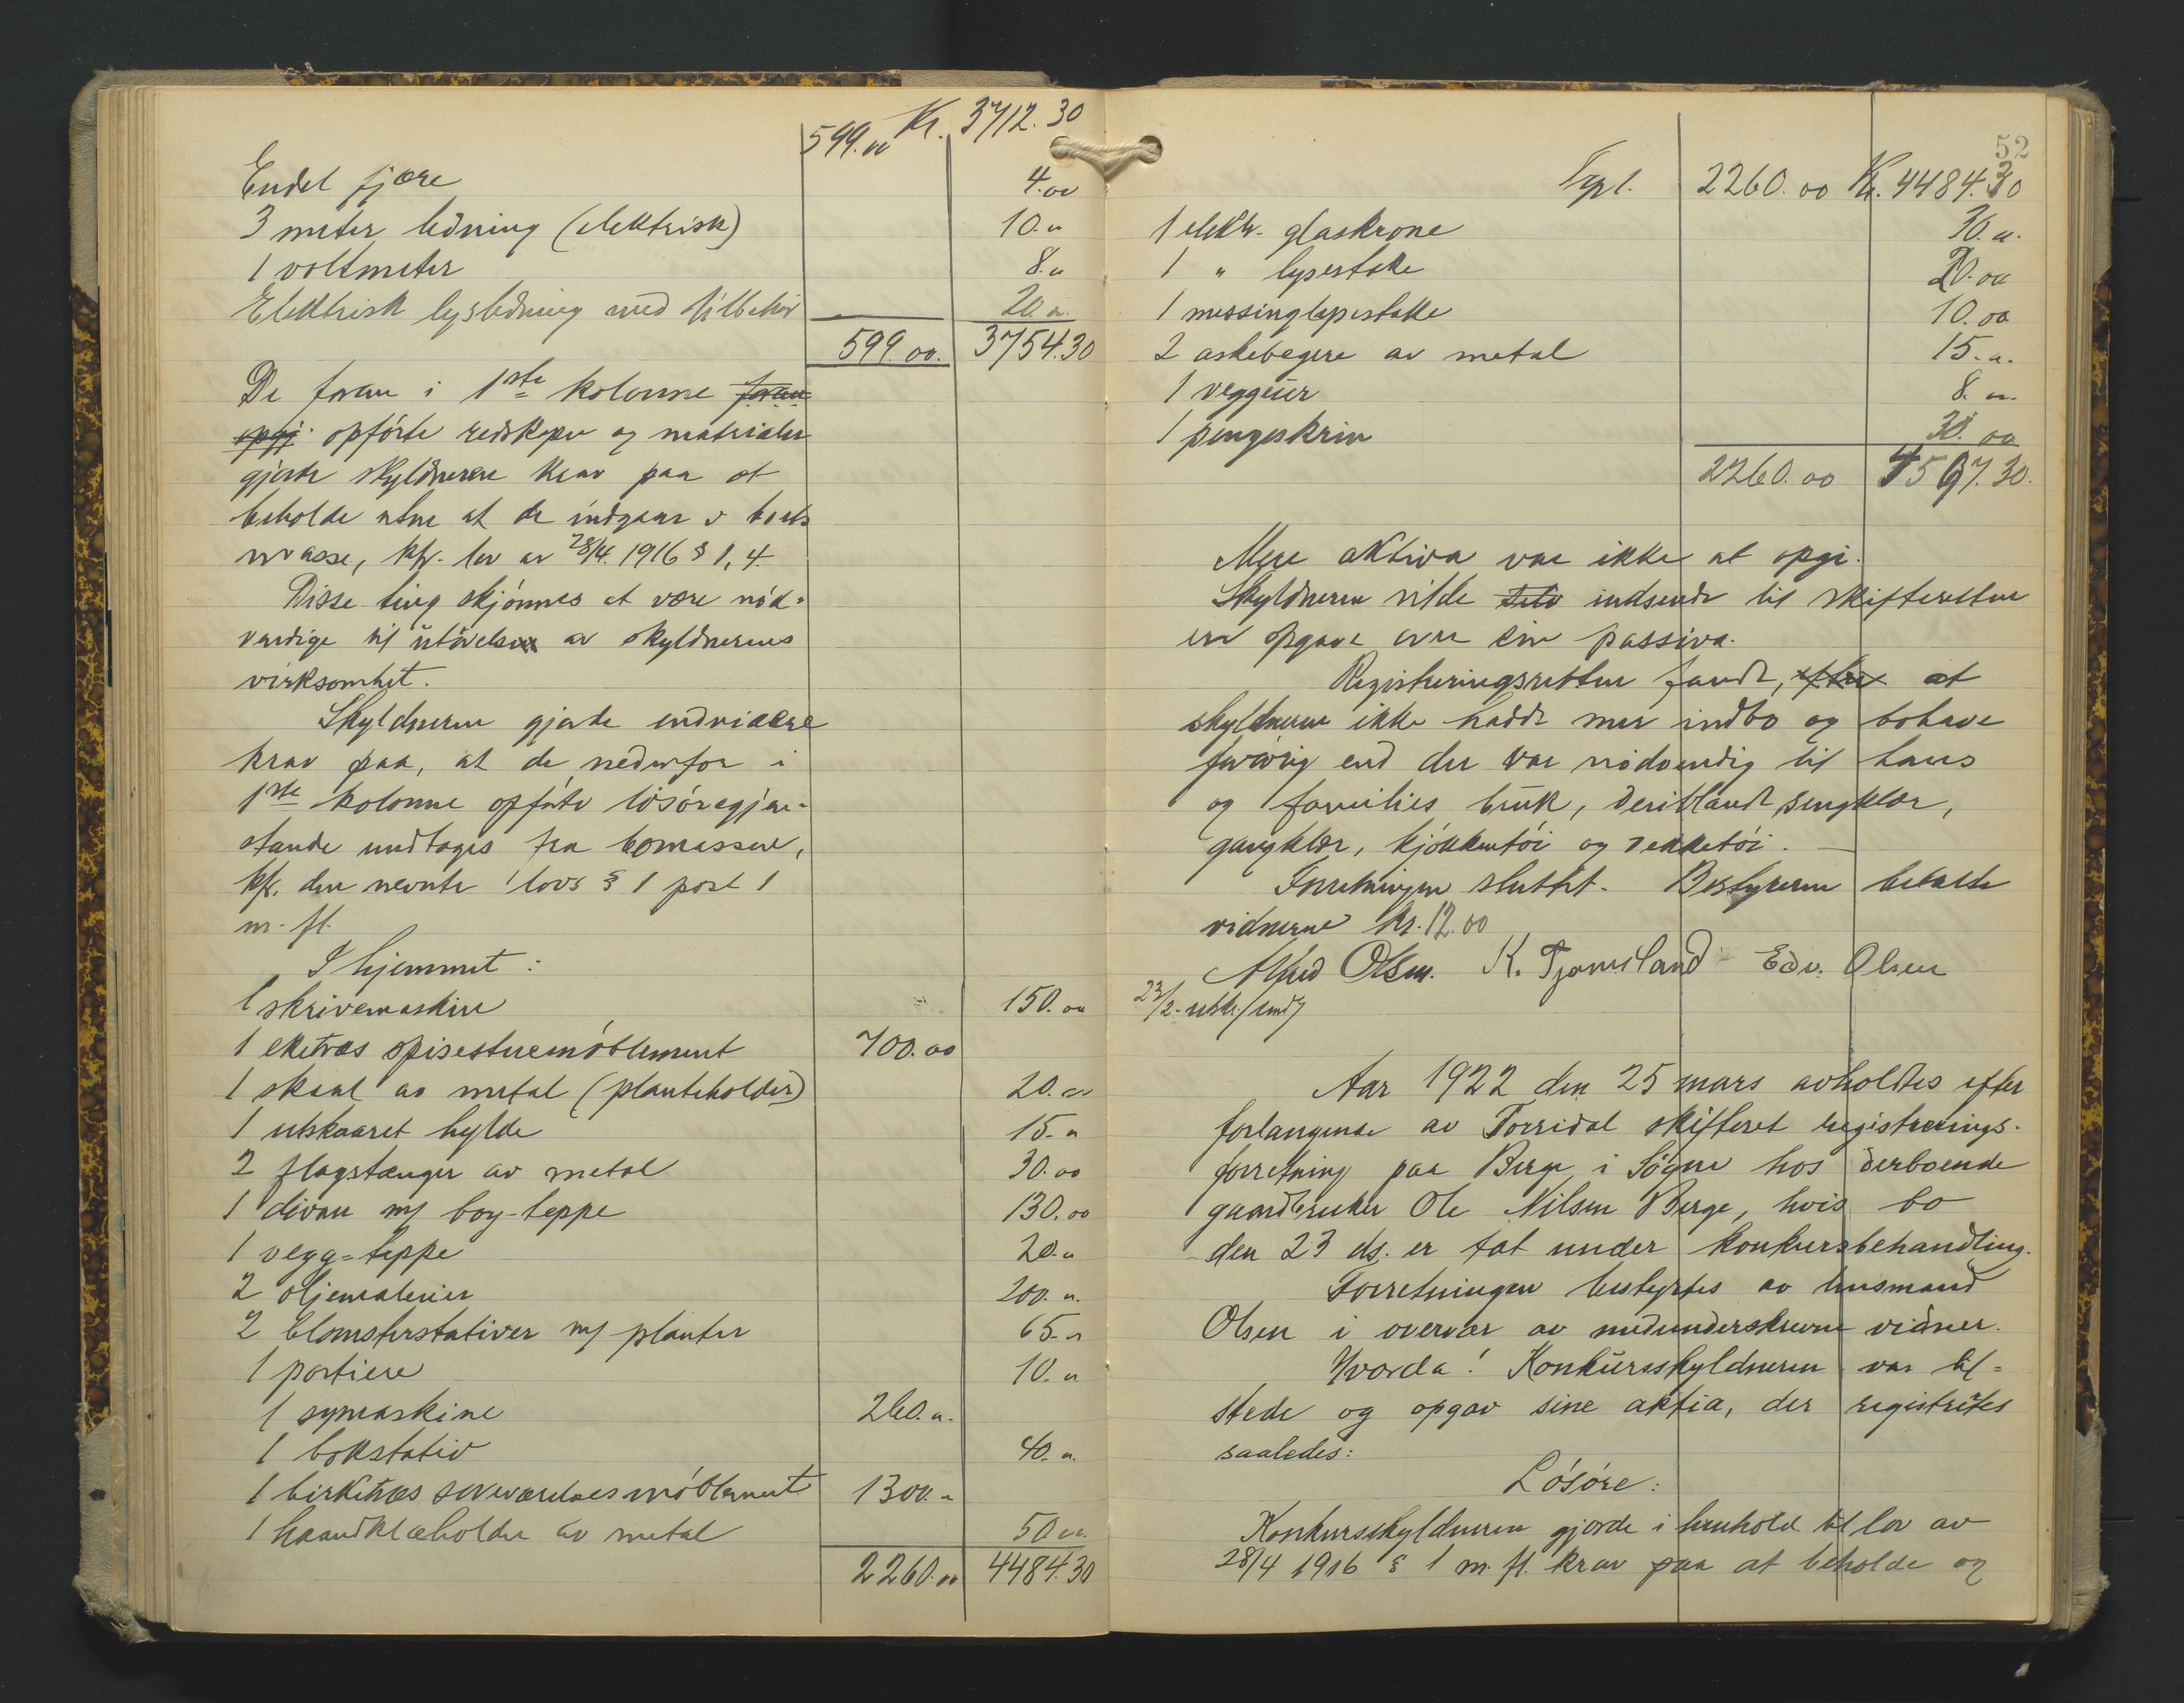 599.00 Kr. 3712.30
Endel fjære 4.00
3 meter ledning (elektrisk) 10.00
1 voltmeter 8.00
Elektrisk lysledning med tilbehør 20.00
599.00. 3754.30
De foran i 1ste kolonne foran
opgj. opførte redskaper og materialer
gjorde skyldneren krav paa at
beholde uten at de indgaar i boets
masse, kfr. lov av 28/4. 1916 § 1, 4.
Disse ting skjønnes at være nød-
vendige til utøvelsen av skyldnerens
virksomhet.
Skyldneren gjorde endvidere
krav paa, at de nedenfor i
1ste kolonne opførte løsøregjen-
stande undtages fra bomassen,
kfr. den nevnte lovs § 1 post 1
m. fl.
I hjemmet:
1 skrivemaskine 150.00
1 eketræs spisestuemøblement 700.00
1 skaal av metal (planteholder) 20.00
1 utskaaret hylde 15.00
2 flagstænger av metal 30.00
1 divan m/ boy-teppe 130.00
1 vegg-teppe 20.00
2 oljemalerier 200.00
2 blomsterstativer m/ planter 65.00
1 portiere 10.00
1 symaskine 260.00
1 bokstativ 40.00
1 birketræs soveværelsesmøblement 1300.00
1 haandklæholder av metal 50.00
2260.00 4484.30
52
Trpt. 2260.00 Kr. 4484.30
1 elektr. glaskrone 30.00
1 " lysestake 20.00
1 messinglysestake 10.00
2 askebægere av metal 15.00
1 veggeur 8.00
1 pengeskrin 30.00
2260.00 4597.30.
Mere aktiva var ikke at opgi.
Skyldneren vilde selv indsende til skifteretten
en opgave over sin passiva.
Registreringsretten fandt, efter at
skyldneren ikke hadde mer indbo og bohave
forøvrig end der var nødvendig til hans
og families bruk, deriblandt sengklær,
gangklær, kjøkkentøi og dekketøi. —
Forretningen sluttet. Bestyreren betalte
vidnerne kr. 12.00
Alfred Olsen. K. Tjomsland Edv. Olsen
23/2. utskr./sendt
Aar 1922 den 25 mars avholdtes efter
forlangende av Torridal skifteret registrerings-
forretning paa Berge i Søgne hos derboende
gaardbruker Ole Nilsen Berge, hvis bo
den 23 ds. er tat under konkursbehandling.
Forretningen bestyrtes av lensmand
Olsen i overvær av medunderskrevne vidner.
Hvorda! Konkursskyldneren var til-
stede og opgav sine aktia, der registrertes
saaledes:
Løsøre:
Konkursskyldneren gjorde i henhold til lov av
28/4 1916 § 1 m. fl. krav paa at beholde og